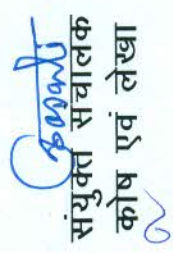 संयुक्त संचालक
कोष एवं लेखा